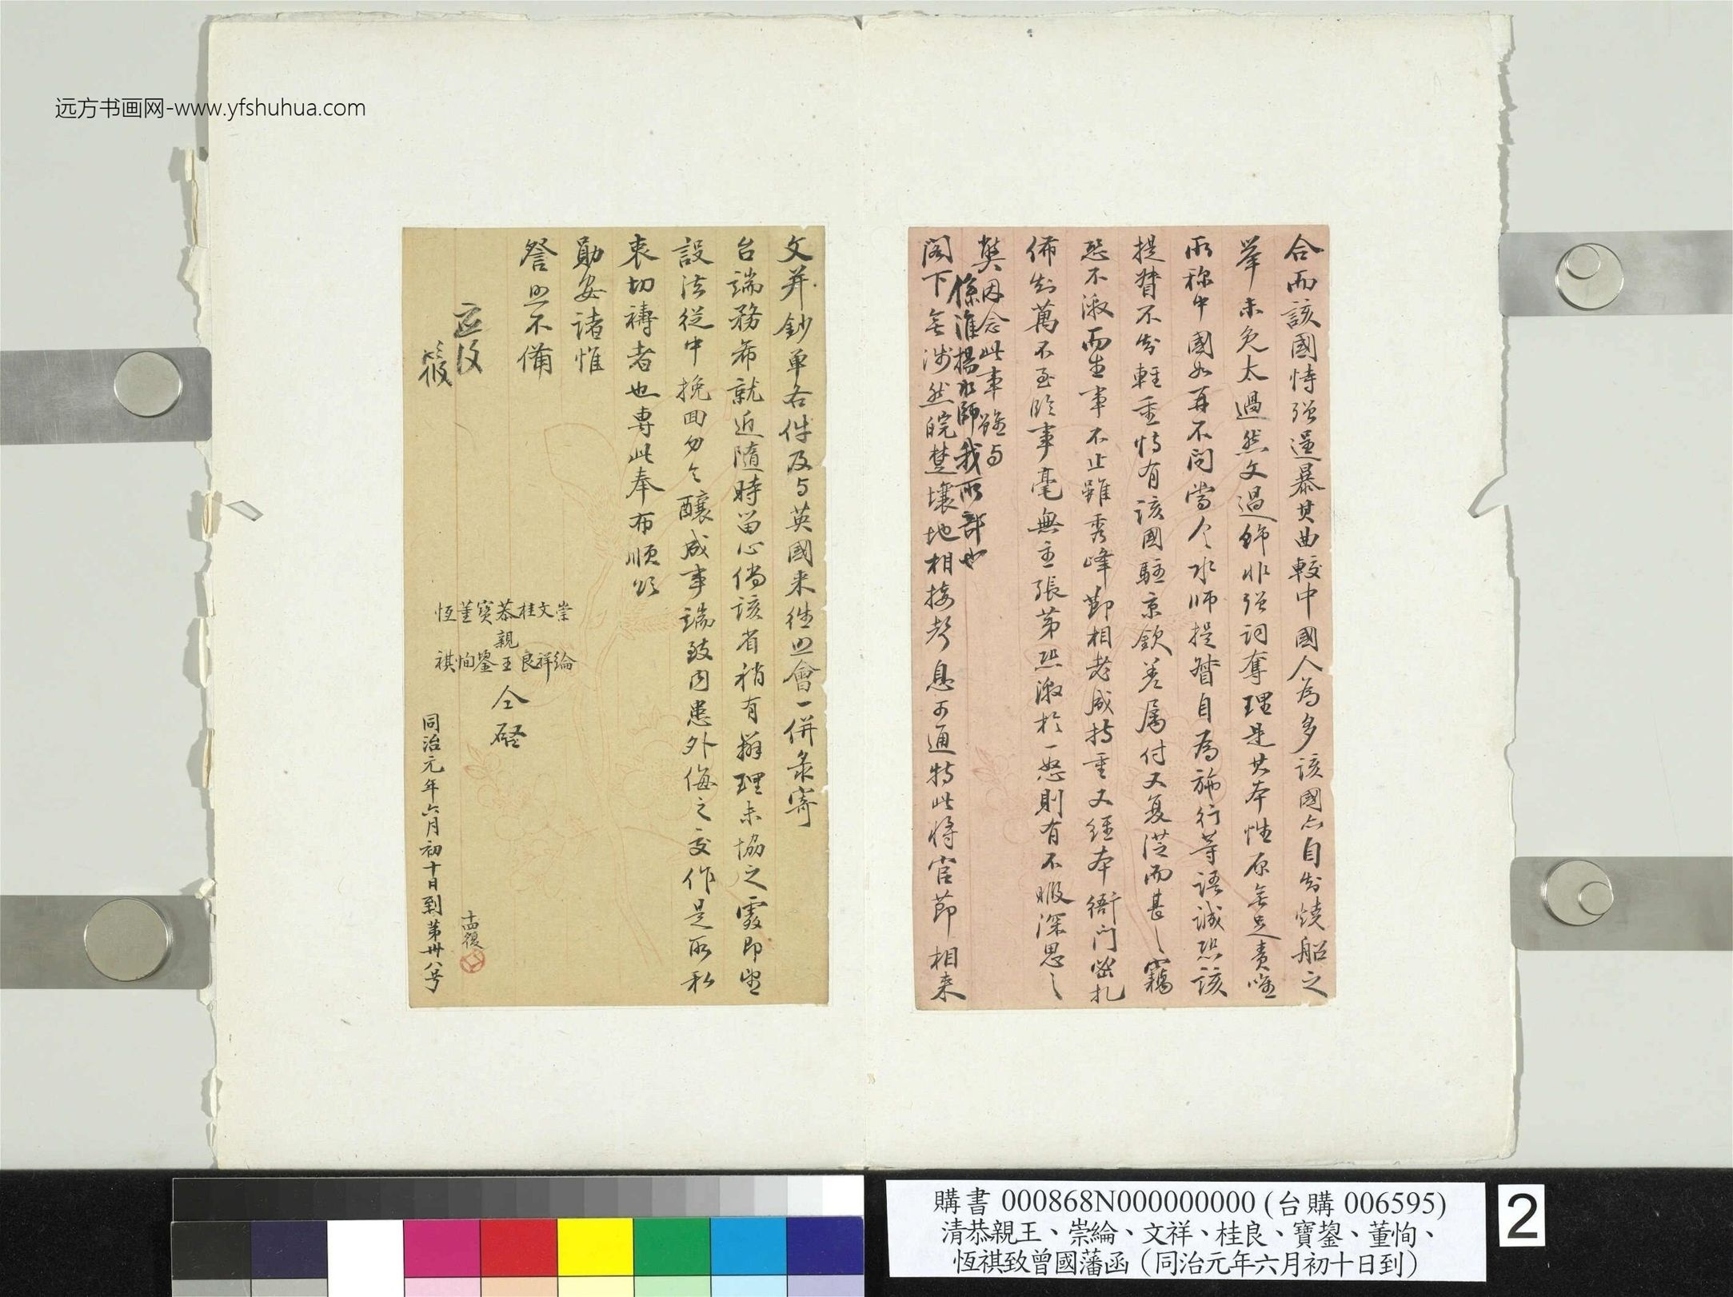 远方书画网-www.yfshuhua.com
合而該國恃强逞暴其曲較中國人為多該國亦自知燒船之
舉未免太過然文過飾非强詞奪理是其本性原無足責唯
所称中國如再不問當令水师提督自為施行等語誠恐該
提督不知輕重恃有該國駐京欽差属付又复從而甚之竊
恐不激而生事不止雖秀峰節相老成持重又經本衙門密札
佈知萬不至臨事毫無主張第恐激於一怒則有不暇深思之
弊因念此事雖与
係淮揚水師我所部也
閣下無涉然皖楚壤地相接聲息可通特此將官節相来
文并鈔单各件及与英國来往照會一併录寄
台端務希就近隨時留心倘该省稍有辦理未協之處即望
設法從中挽回勿令釀成事端致内患外侮之交作是所私
衷切禱者也専此奉布順頌
勛安諸惟
詧照不備
崇綸
文祥
桂良
恭親王
寳鋆
董恂
恆祺
仝啓
同治元年六月初十日到第卅八号
購書 000868N000000000 (台購 006595)
清恭親王、崇綸、文祥、桂良、寶鋆、董恂、
恆祺致曾國藩函（同治元年六月初十日到）
2